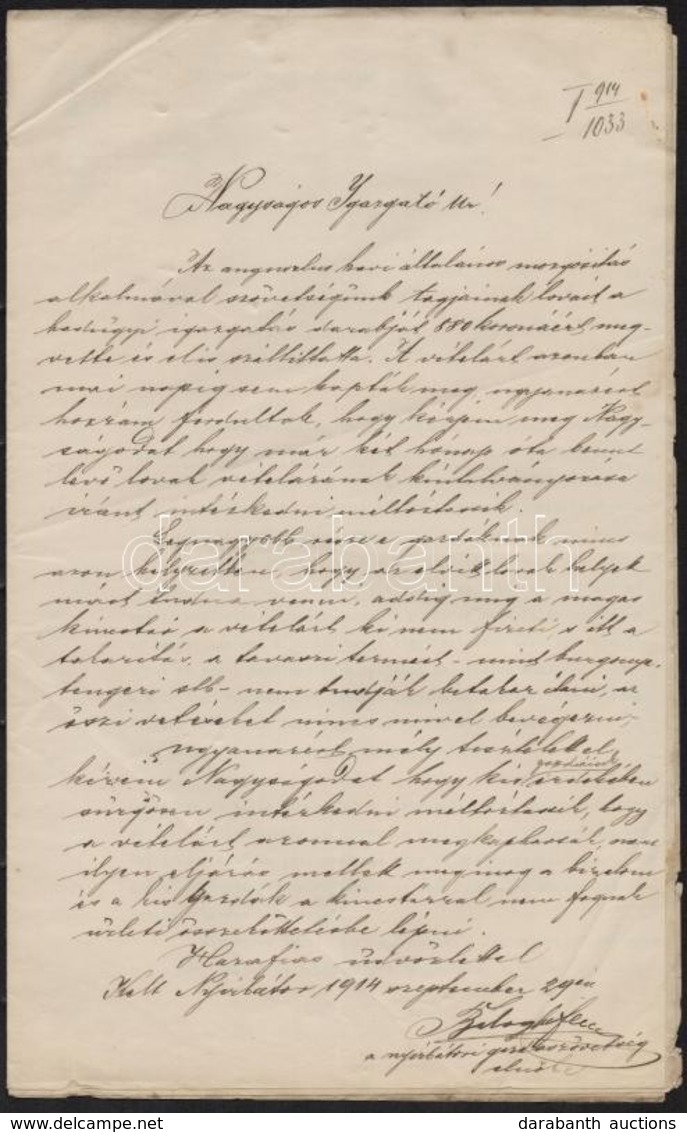 I 914
1033
Nagyságos Igazgató Úr!
Az augusztus havi általános mozgósitás
alkalmával szövetségünk tagjainak lovait a
hadügyi igazgatás darabját 880 koronáért meg-
vette és el is szállittatta. A vételárt azonban
mai napig sem kapták meg, ugyanazért
hozzám fordultak, hogy kérjem meg Nagy-
ságodat hogy már két hónap óta bennt
lévő lovak vételárának kiutalványozása
iránt intézkedni méltóztassék.
Legnagyobb része a gazdáknak nincs
azon helyzetben, hogy az elvitt lovak helyett
mást tudna venni, addig mig a magas
kincstár a vételárt ki nem fizeti, s itt a
takaritás, a tavaszi termést - mind burgonya,
tengeri stb - nem tudják betakaritani, az
őszi vetéseket nincs mivel bevégezni,
ugyanazért mély tisztelettel
kérem Nagyságodat hogy kis gazdáink érdekében
sürgősen intézkedni méltóztassék, hogy
a vételárt azonnal megkaphassák, mert
ilyen eljárás mellett meginog a bizalom
és a kis gazdák a kincstárral nem fognak
üzleti összeköttetésbe lépni.
Hazafias üdvözlettel
Kelt Nyirbátor 1914 szeptember 29én
a nyirbátori gazdaszövetség
elnöke
darabanth
darabanth auctions